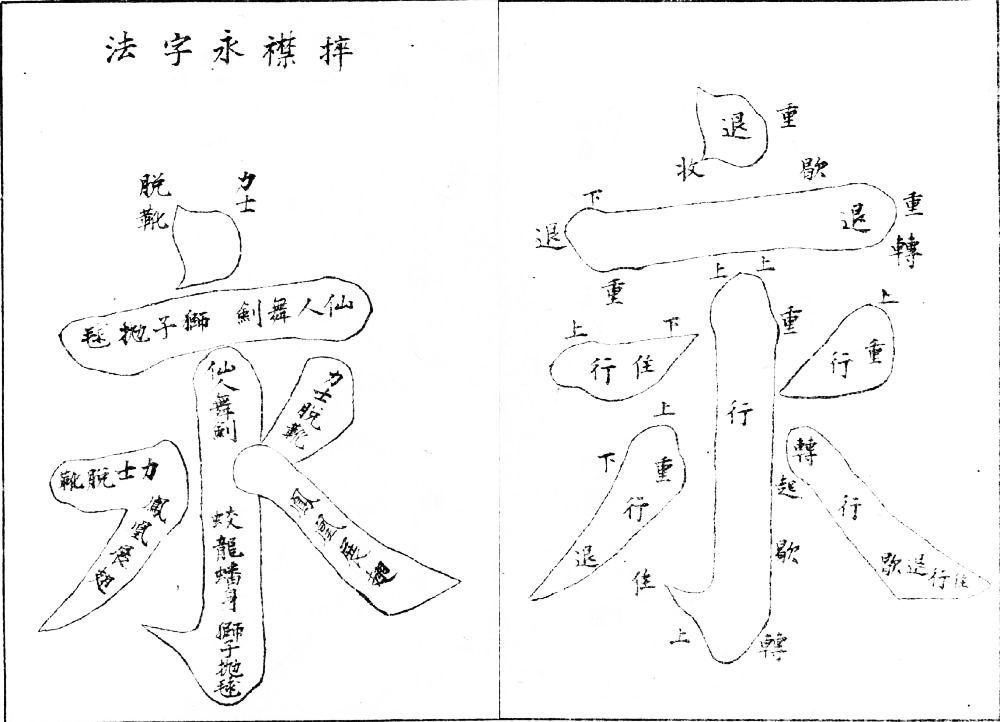 捽襟永字法
力士
脱靴
仙人舞劍 獅子抛毬
仙人舞劍
蛟龍蟠身
獅子抛毬
力士脱靴
鳳凰展翅
力士脱靴
鳳凰展翅
退
重
收
歇
下
退
退
重
轉
重
上
上
重
行
起
歇
轉
上
住
上
下
行
住
上
重
行
上
下
重
行
退
轉
行
歇
退
行
住